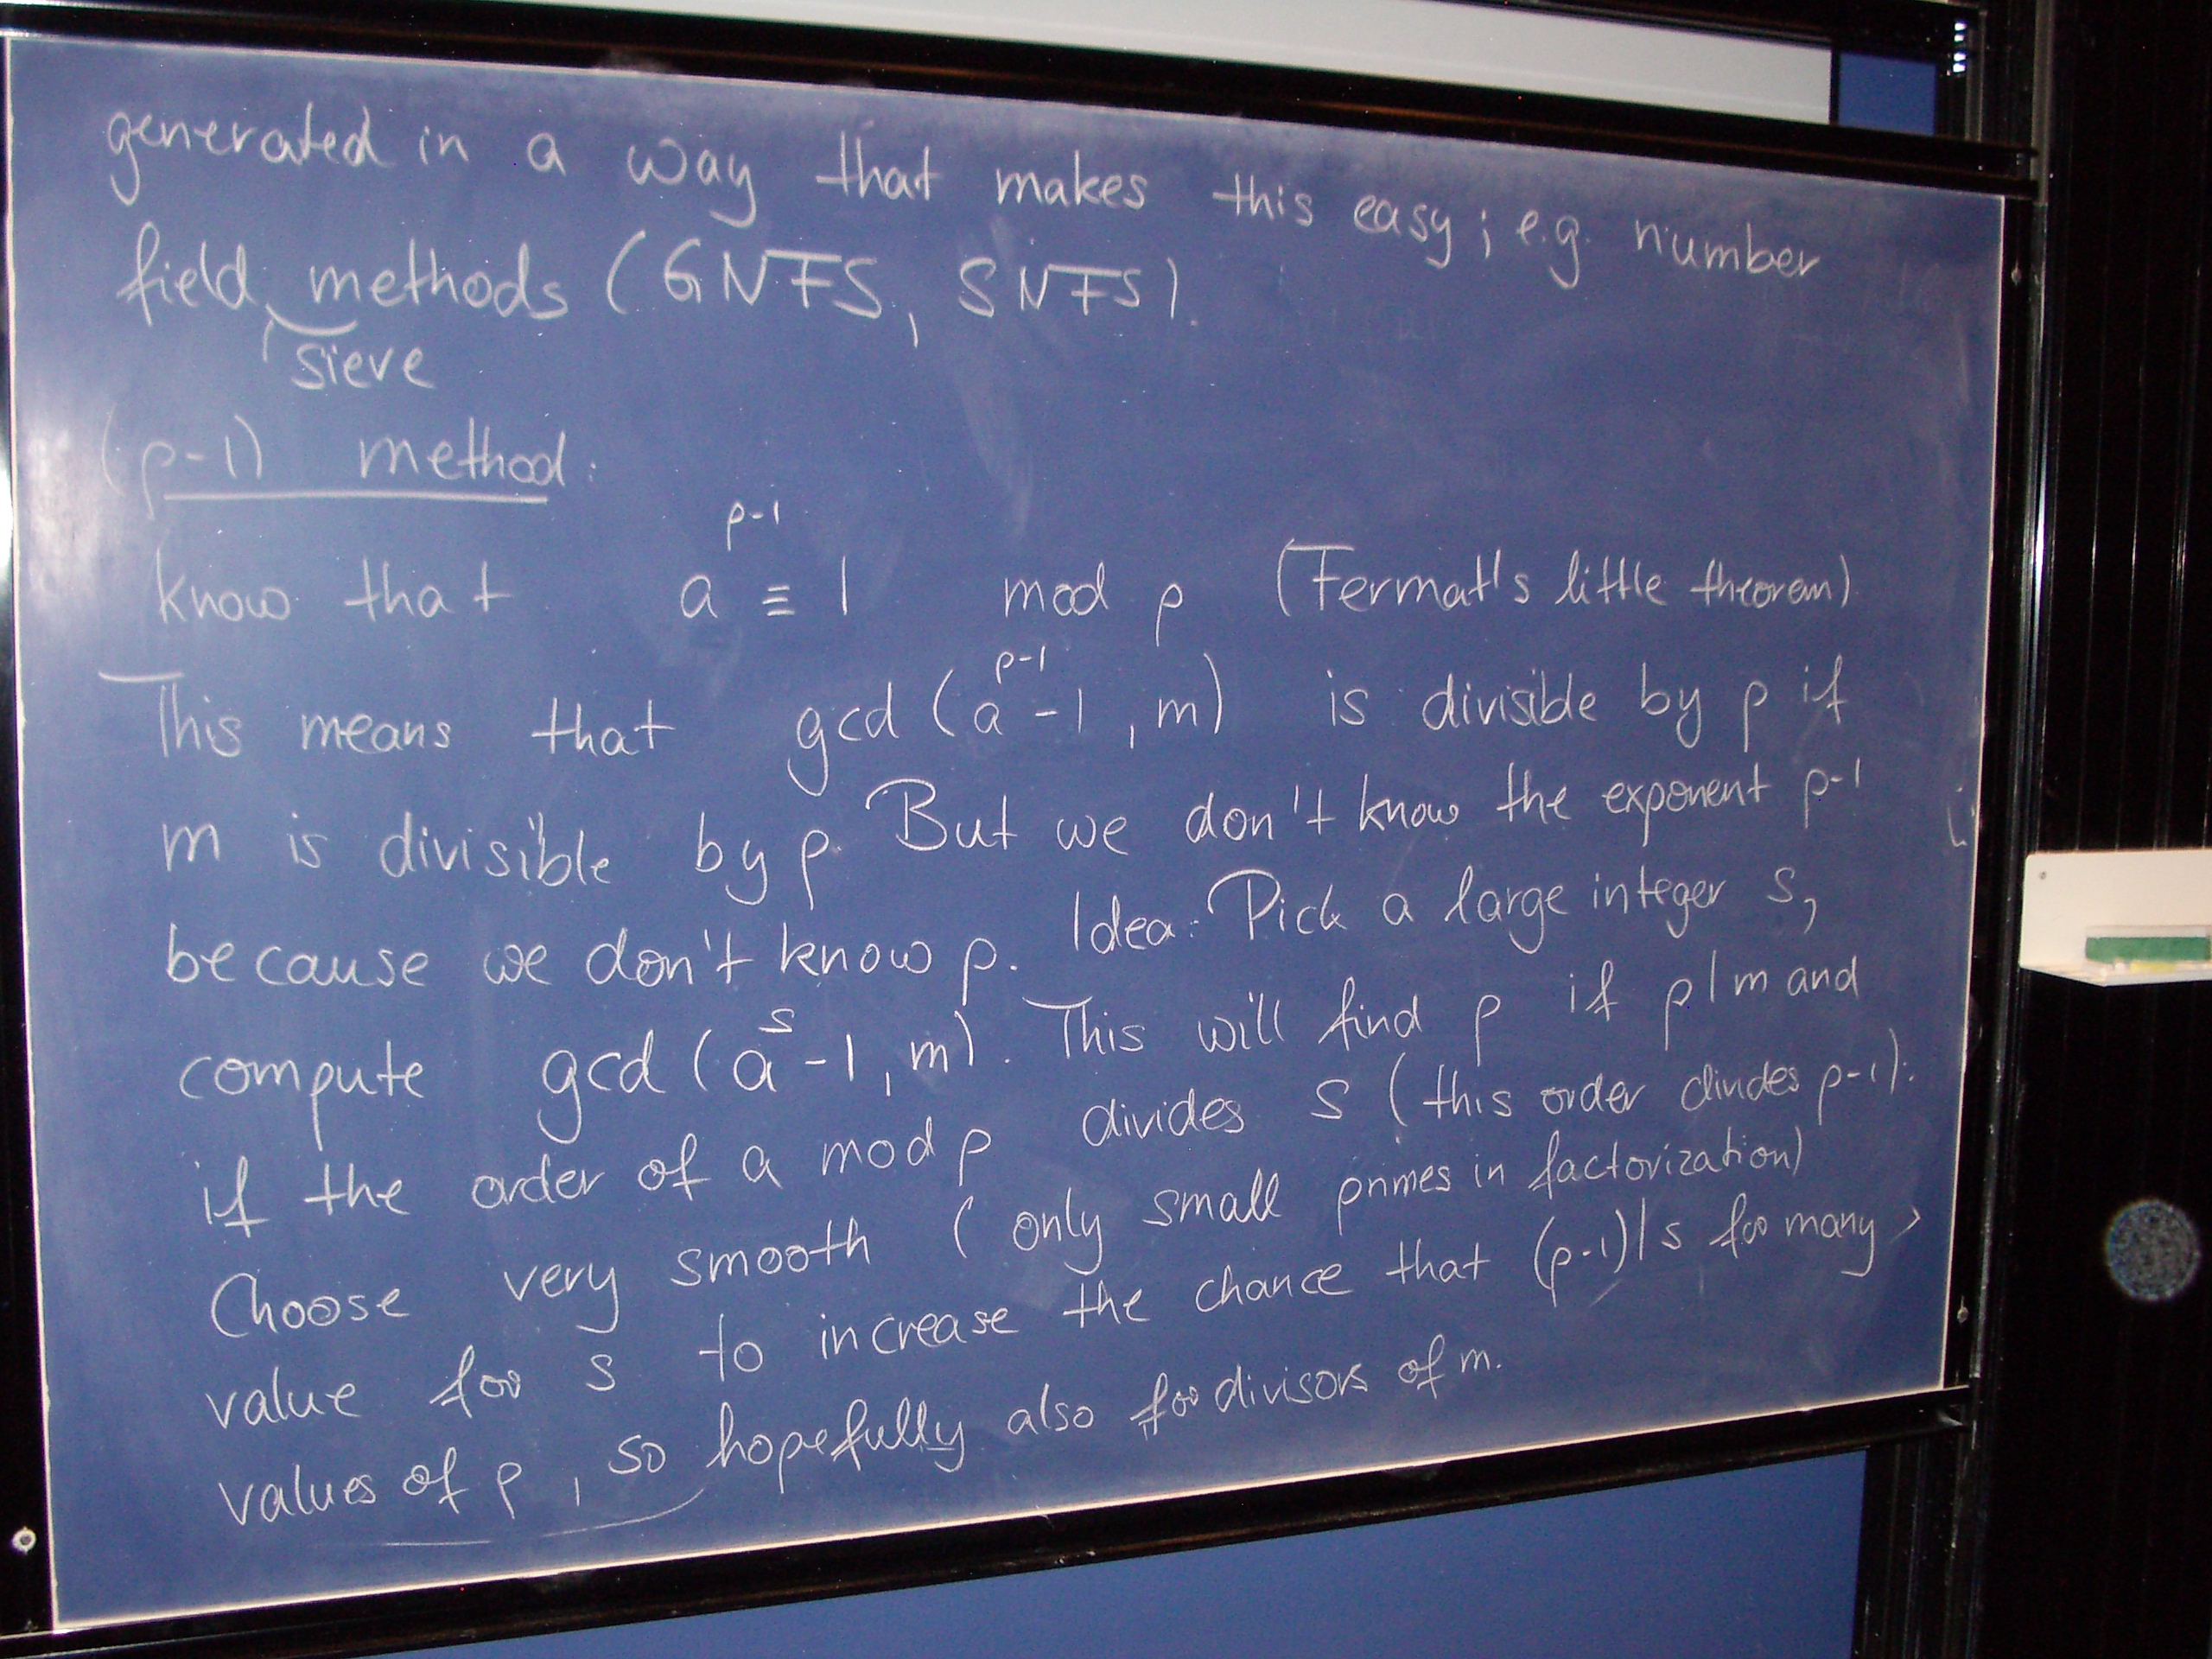 generated in a way that makes this easy; e.g. number
field methods (GNFS, SNFS).
sieve
(p-1) method:
know that a^{p-1} ≡ 1 mod p (Fermat's little theorem)
This means that gcd(a^{p-1}-1, m) is divisible by p if
m is divisible by p. But we don't know the exponent p-1
because we don't know p. Idea: Pick a large integer s,
compute gcd(a^s-1, m). This will find p if p|m and
if the order of a mod p divides s (this order divides p-1).
Choose very smooth (only small primes in factorization)
value for s to increase the chance that (p-1)|s for many
values of p, so hopefully also for divisors of m.